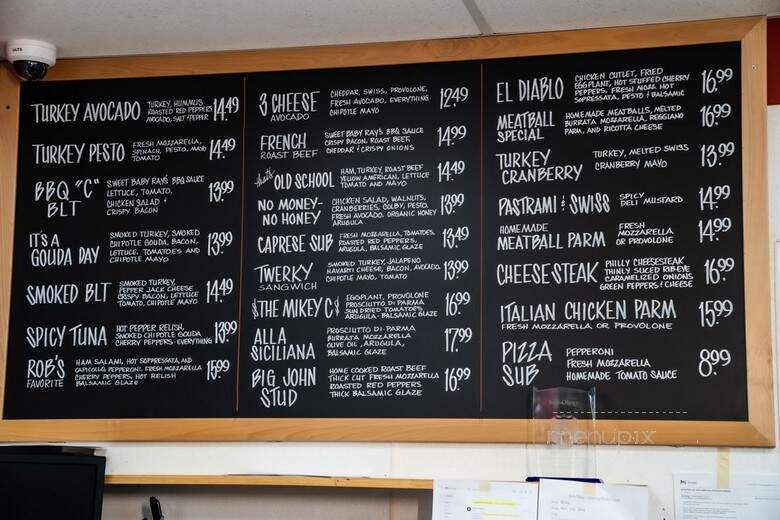 TURKEY AVOCADO
TURKEY, HUMMUS
ROASTED RED PEPPERS
AVOCADO, SALT & PEPPER
14.49
TURKEY PESTO
FRESH MOZZARELLA,
SPINACH, PESTO, MAYO
TOMATO
14.49
BBQ "C"
BLT
SWEET BABY RAY'S BBQ SAUCE
LETTUCE, TOMATO,
CHICKEN SALAD &
CRISPY BACON
13.99
IT'S A
GOUDA DAY
SMOKED TURKEY, SMOKED
CHIPOTLE GOUDA, BACON,
LETTUCE, TOMATOES AND
CHIPOTLE MAYO
13.99
SMOKED BLT
SMOKED TURKEY,
PEPPER JACK CHEESE
CRISPY BACON, LETTUCE
TOMATO, CHIPOTLE MAYO
14.49
SPICY TUNA
HOT PEPPER RELISH,
SMOKED CHIPOTLE GOUDA
CHERRY PEPPERS-EVERYTHING
13.99
ROB'S
FAVORITE
HAM SALAMI, HOT SOPPRESSATA, AND
CAPICOLLO, PEPPERONI, FRESH MOZZARELLA
CHERRY PEPPERS, HOT RELISH
BALSAMIC GLAZE
15.99
3 CHEESE
AVOCADO
CHEDDAR, SWISS, PROVOLONE,
FRESH AVOCADO, EVERYTHING
CHIPOTLE MAYO
12.49
FRENCH
ROAST BEEF
SWEET BABY RAY'S BBQ SAUCE
CRISPY BACON, ROAST BEEF
CHEDDAR & CRISPY ONIONS
14.99
that's OLD SCHOOL
HAM, TURKEY, ROAST BEEF
YELLOW AMERICAN, LETTUCE
TOMATO AND MAYO
14.49
NO MONEY-
NO HONEY
CHICKEN SALAD, WALNUTS,
CRANBERRIES, COLBY, PESTO,
FRESH AVOCADO, ORGANIC HONEY
ARUGULA
13.99
CAPRESE SUB
FRESH MOZZARELLA, TOMATOES,
ROASTED RED PEPPERS,
ARUGULA, BALSAMIC GLAZE
13.49
TWERKY
SANGWICH
SMOKED TURKEY, JALAPENO
HAVARTI CHEESE, BACON, AVOCADO,
CHIPOTLE MAYO, TOMATO
13.99
$THE MIKEY C$
EGGPLANT, PROVOLONE
PROSCIUTTO DI PARMA
SUN DRIED TOMATOES,
ARUGULA- BALSAMIC GLAZE
16.99
ALLA
SICILIANA
PROSCIUTTO DI PARMA
BURRATA MOZZARELLA
OLIVE OIL, ARUGULA,
BALSAMIC GLAZE
17.99
BIG JOHN
STUD
HOME COOKED ROAST BEEF
THICK CUT FRESH MOZZARELLA
ROASTED RED PEPPERS
THICK BALSAMIC GLAZE
16.99
EL DIABLO
CHICKEN CUTLET, FRIED
EGGPLANT, HOT STUFFED CHERRY
PEPPERS, FRESH MOZZ, HOT
SOPRESSATA, PESTO & BALSAMIC
16.99
MEATBALL
SPECIAL
HOMEMADE MEATBALLS, MELTED
BURRATA MOZZARELLA, REGGIANO
PARM, AND RICOTTA CHEESE
16.99
TURKEY
CRANBERRY
TURKEY, MELTED SWISS
CRANBERRY MAYO
13.99
PASTRAMI & SWISS
SPICY
DELI MUSTARD
14.99
HOMEMADE
MEATBALL PARM
FRESH
MOZZARELLA
OR PROVOLONE
14.99
CHEESESTEAK
PHILLY CHEESESTEAK
THINLY SLICED RIBEYE
CARAMELIZED ONIONS
GREEN PEPPERS & CHEESE
16.99
ITALIAN CHICKEN PARM
FRESH MOZZARELLA OR PROVOLONE
15.99
PIZZA
SUB
PEPPERONI
FRESH MOZZARELLA
HOMEMADE TOMATO SAUCE
8.99
menupix